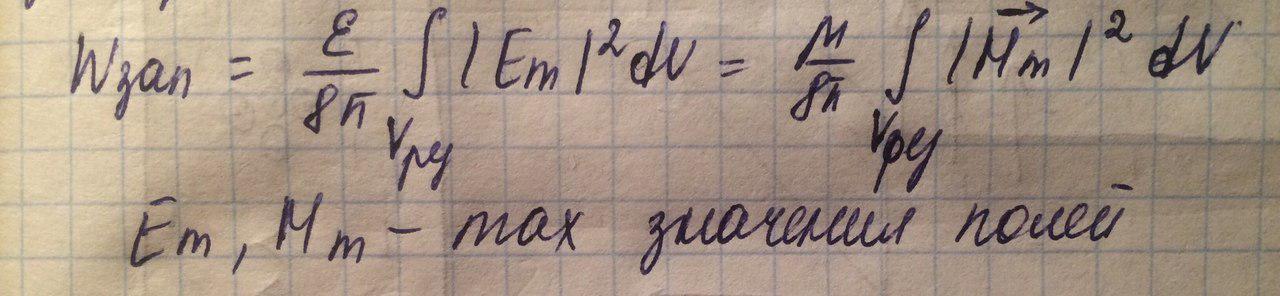 Wзап = ε/8π ∫Vру |Em|² dV = μ/8π ∫Vру |H⃗m|² dV
Em, Hm – max значения полей